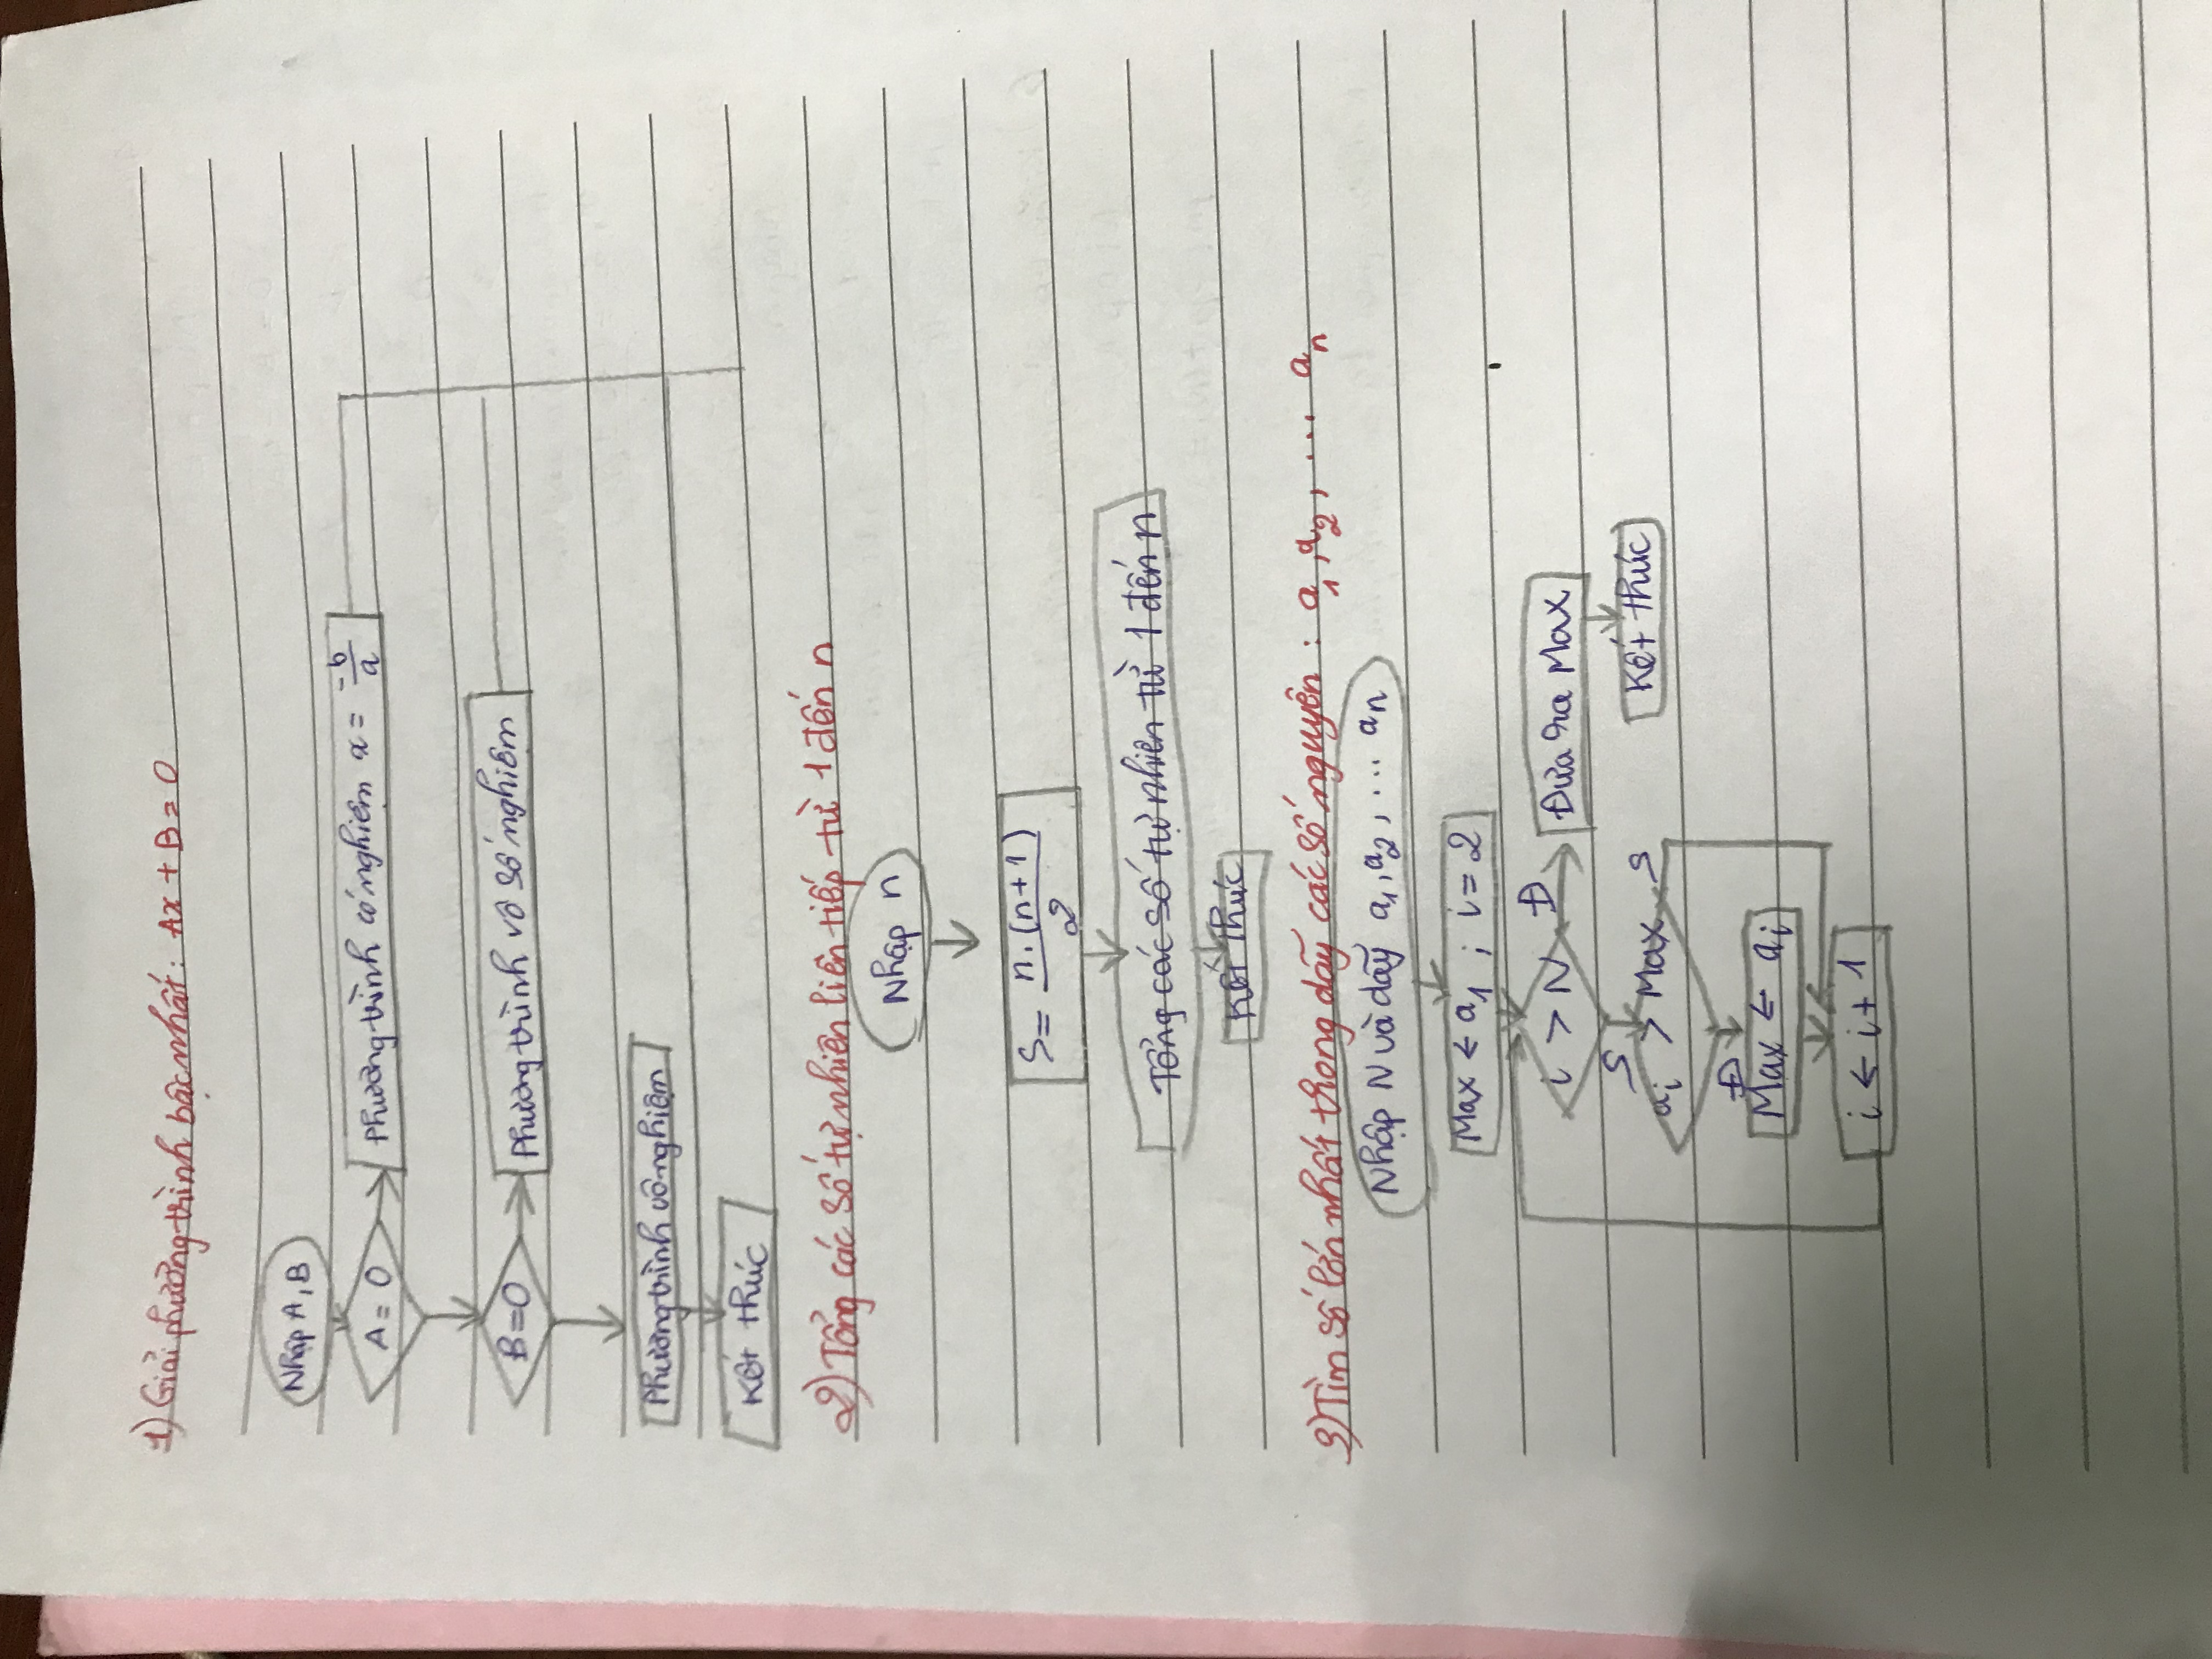 1) Giải phương trình bậc nhất: Ax + B = 0
Nhập A, B
A = 0
Phương trình có nghiệm x = -b/a
B = 0
Phương trình vô số nghiệm
Phương trình vô nghiệm
Kết thúc
2) Tổng các số tự nhiên liên tiếp từ 1 đến n
Nhập n
S = n.(n+1)/2
Tổng các số tự nhiên từ 1 đến n
Kết thúc
3) Tìm số lớn nhất trong dãy các số nguyên: a1, a2, ... an
Nhập N và dãy a1, a2, ... an
Max ← a1 ; i = 2
i > N Đ Đưa ra Max
S
Kết thúc
ai > Max S
Đ
Max ← ai
i ← i + 1